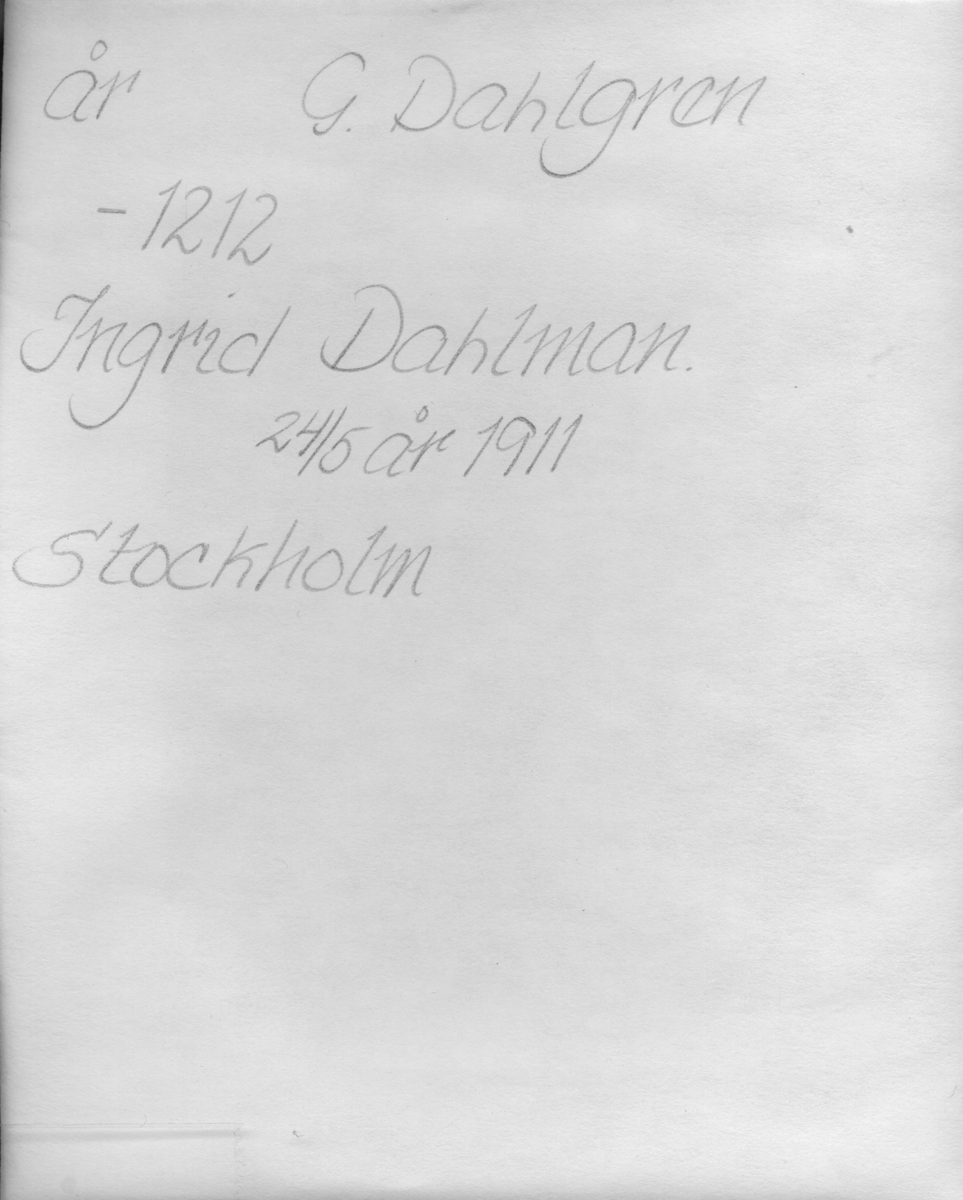 år G. Dahlgren
- 1212
Ingrid Dahlman.
24/5 år 1911
Stockholm